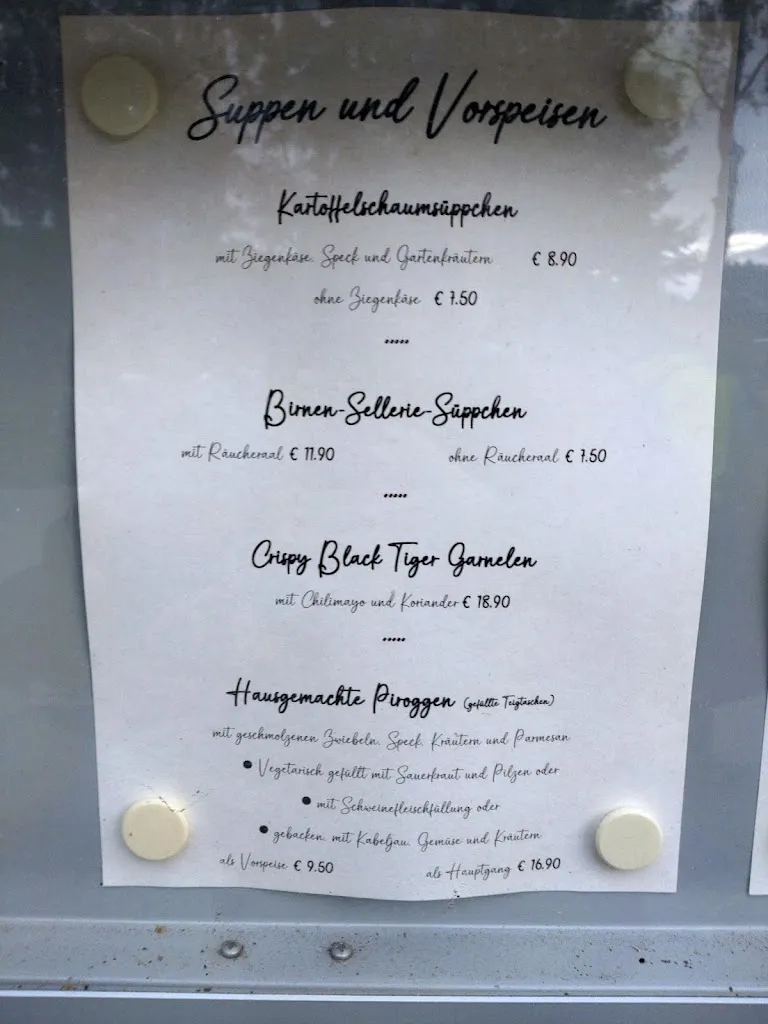 Suppen und Vorspeisen
Kartoffelschaumsüppchen
mit Ziegenkäse, Speck und Gartenkräutern € 8.90
ohne Ziegenkäse € 7.50
.....
Birnen-Sellerie-Süppchen
mit Räucheraal € 11.90 ohne Räucheraal € 7.50
.....
Crispy Black Tiger Garnelen
mit Chilimayo und Koriander € 18.90
.....
Hausgemachte Piroggen (gefüllte Teigtaschen)
mit geschmolzenen Zwiebeln, Speck, Kräutern und Parmesan
• Vegetarisch gefüllt mit Sauerkraut und Pilzen oder
• mit Schweinefleischfüllung oder
• gebacken, mit Kabeljau, Gemüse und Kräutern
als Vorspeise € 9.50 als Hauptgang € 16.90